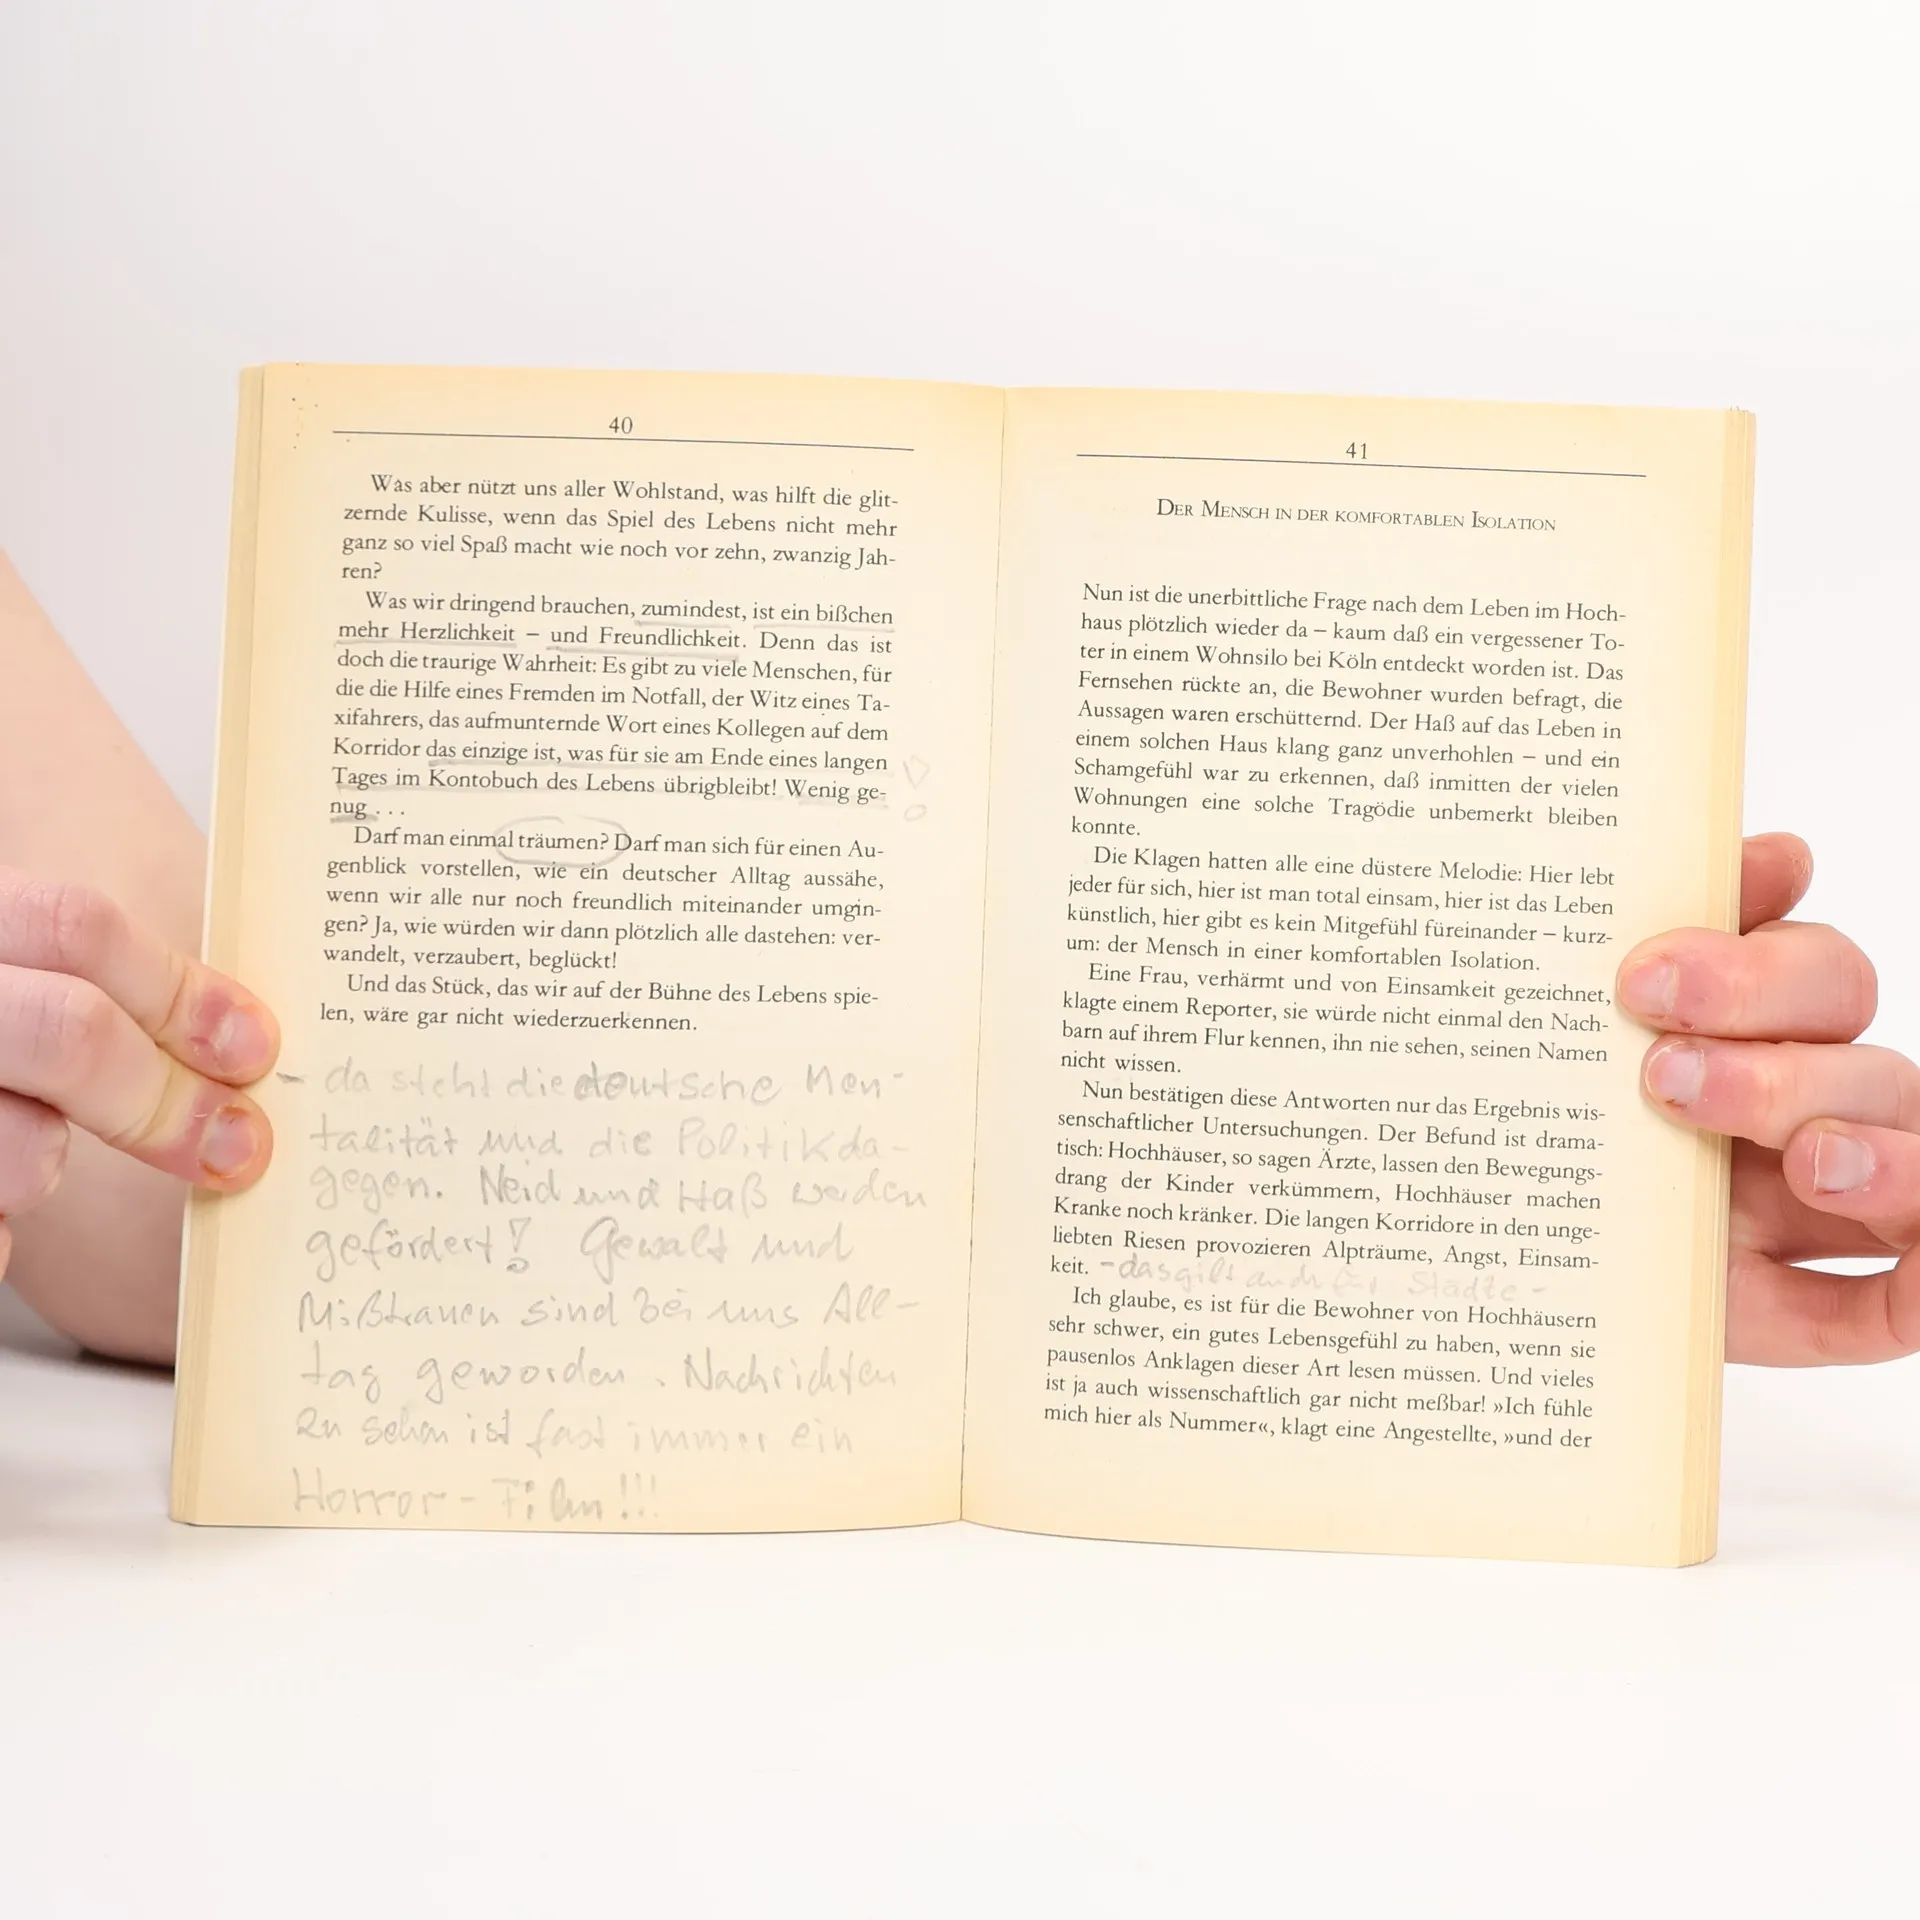 40
Was aber nützt uns aller Wohlstand, was hilft die glit-
zernde Kulisse, wenn das Spiel des Lebens nicht mehr
ganz so viel Spaß macht wie noch vor zehn, zwanzig Jah-
ren?
Was wir dringend brauchen, zumindest, ist ein bißchen
mehr Herzlichkeit – und Freundlichkeit. Denn das ist
doch die traurige Wahrheit: Es gibt zu viele Menschen, für
die die Hilfe eines Fremden im Notfall, der Witz eines Ta-
xifahrers, das aufmunternde Wort eines Kollegen auf dem
Korridor das einzige ist, was für sie am Ende eines langen
Tages im Kontobuch des Lebens übrigbleibt! Wenig ge-
nug . . .
Darf man einmal träumen? Darf man sich für einen Au-
genblick vorstellen, wie ein deutscher Alltag aussähe,
wenn wir alle nur noch freundlich miteinander umgin-
gen? Ja, wie würden wir dann plötzlich alle dastehen: ver-
wandelt, verzaubert, beglückt!
Und das Stück, das wir auf der Bühne des Lebens spie-
len, wäre gar nicht wiederzuerkennen.
– da steht die deutsche Men-
talität und die Politik da-
gegen. Neid und Haß werden
gefördert! Gewalt und
Mißtrauen sind bei uns All-
tag geworden. Nachrichten
zu sehen ist fast immer ein
Horror-Film!!!
41
DER MENSCH IN DER KOMFORTABLEN ISOLATION
Nun ist die unerbittliche Frage nach dem Leben im Hoch-
haus plötzlich wieder da – kaum daß ein vergessener To-
ter in einem Wohnsilo bei Köln entdeckt worden ist. Das
Fernsehen rückte an, die Bewohner wurden befragt, die
Aussagen waren erschütternd. Der Haß auf das Leben in
einem solchen Haus klang ganz unverhohlen – und ein
Schamgefühl war zu erkennen, daß inmitten der vielen
Wohnungen eine solche Tragödie unbemerkt bleiben
konnte.
Die Klagen hatten alle eine düstere Melodie: Hier lebt
jeder für sich, hier ist man total einsam, hier ist das Leben
künstlich, hier gibt es kein Mitgefühl füreinander – kurz-
um: der Mensch in einer komfortablen Isolation.
Eine Frau, verhärmt und von Einsamkeit gezeichnet,
klagte einem Reporter, sie würde nicht einmal den Nach-
barn auf ihrem Flur kennen, ihn nie sehen, seinen Namen
nicht wissen.
Nun bestätigen diese Antworten nur das Ergebnis wis-
senschaftlicher Untersuchungen. Der Befund ist drama-
tisch: Hochhäuser, so sagen Ärzte, lassen den Bewegungs-
drang der Kinder verkümmern, Hochhäuser machen
Kranke noch kränker. Die langen Korridore in den unge-
liebten Riesen provozieren Alpträume, Angst, Einsam-
keit. – das gilt auch für Städte –
Ich glaube, es ist für die Bewohner von Hochhäusern
sehr schwer, ein gutes Lebensgefühl zu haben, wenn sie
pausenlos Anklagen dieser Art lesen müssen. Und vieles
ist ja auch wissenschaftlich gar nicht meßbar! »Ich fühle
mich hier als Nummer«, klagt eine Angestellte, »und der